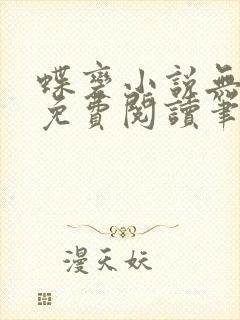 蝶變小說無
免費閱讀筆
漫天妖